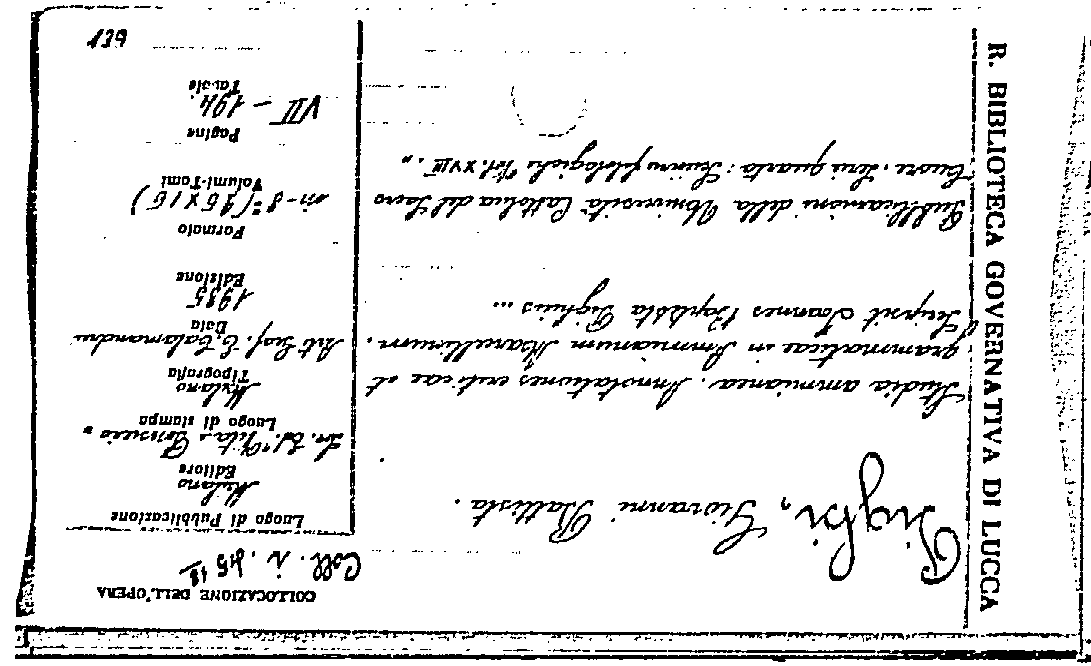 R. BIBLIOTECA GOVERNATIVA DI LUCCA
COLLOCAZIONE DELL'OPERA
Coll. i. 45 18
Pighi, Giovanni Battista.
Studia ammianea. Annotationes criticae et
grammaticae in Ammianum Marcellinum.
Scripsit Ioannes Baptista Pighius ...
Pubblicazioni della Università Cattolica del Sacro
Cuore. Serie quarta: Scienze filologiche Vol. XVIII. "
Luogo di Pubblicazione
Milano
Editore
Soc. Ed. "Vita e Pensiero"
Luogo di stampa
Milano
Tipografia
Arti Graf. E. Calamandrei
Data
1935
Edizione
Formato
in-8° (26×16)
Volumi-Tomi
Pagine
VIII - 194.
Tavole
139